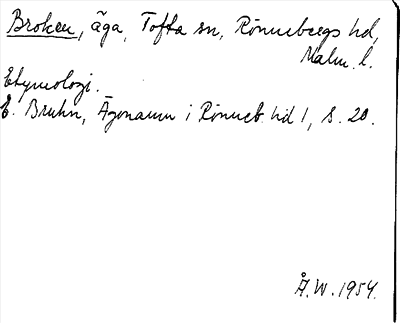 Broken, äga, Tofta sn, Rönnebergs hd,
Malm. l.
Etymologi.
E. Bruhn, Ägonamn i Rönneb. hd 1, s. 20.
Å.W. 1954.